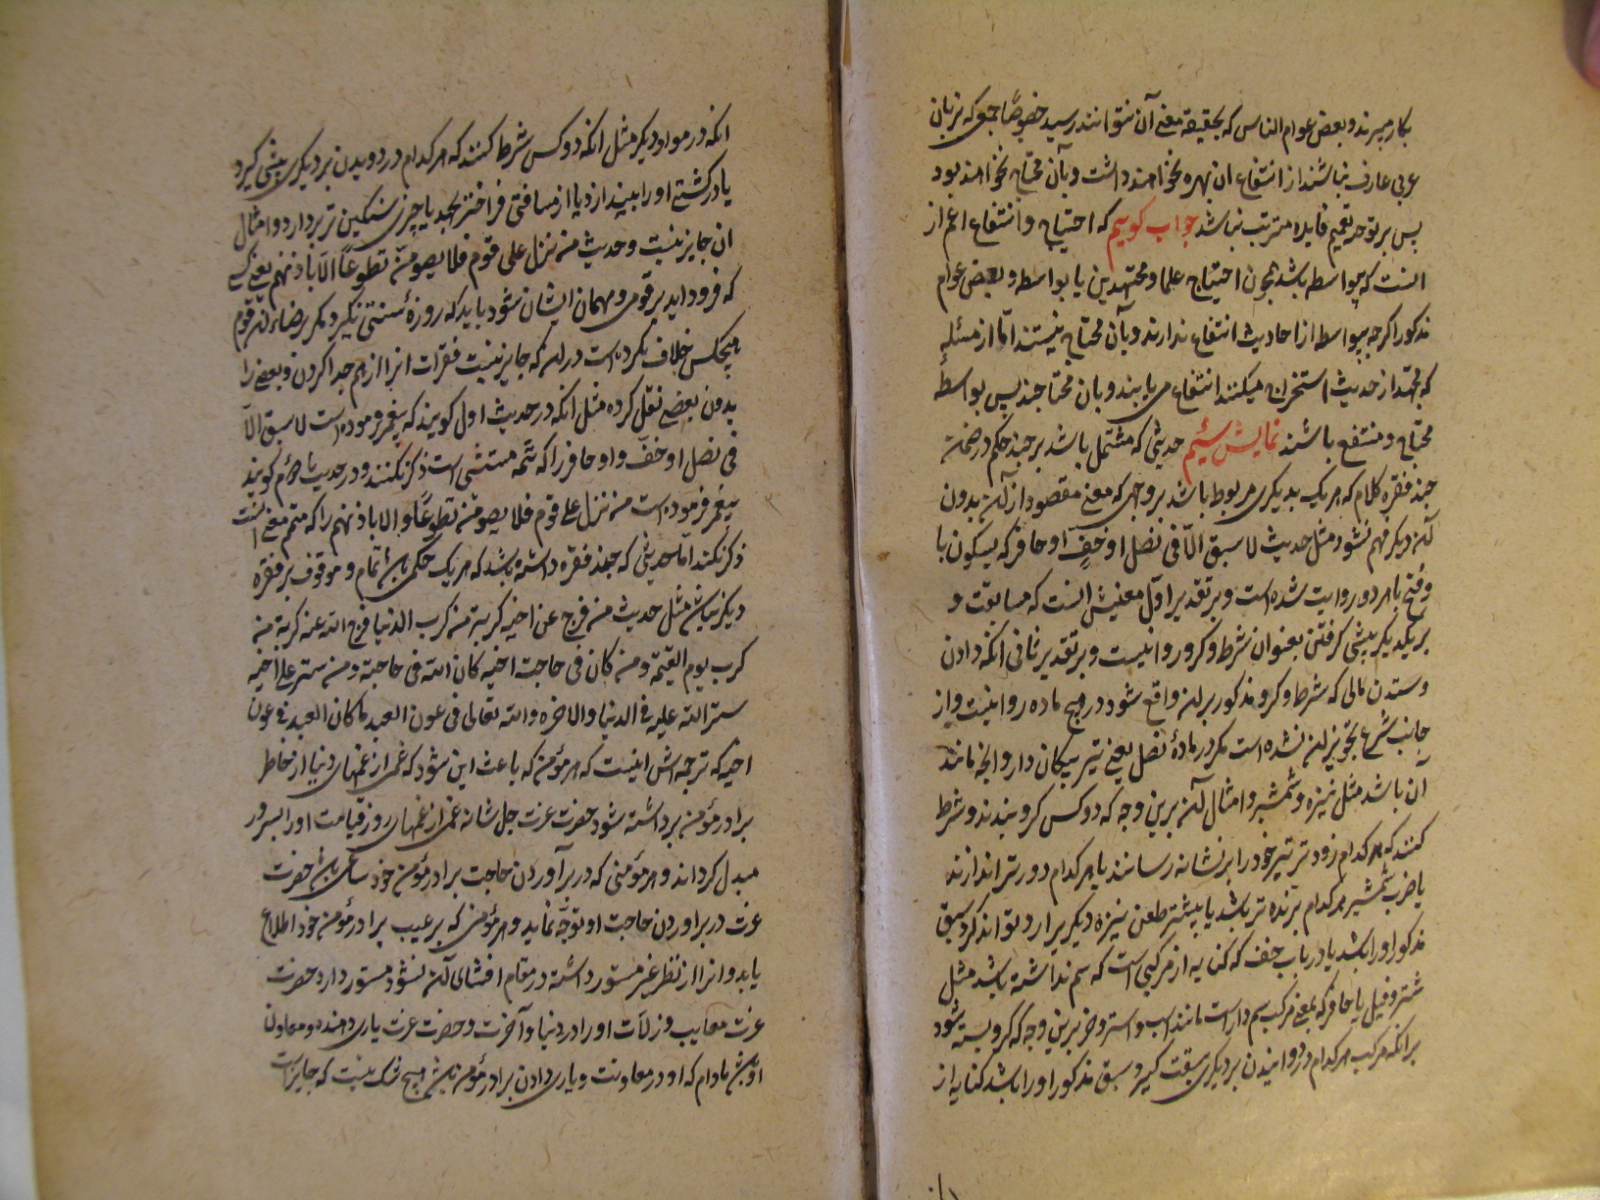 بکار میبرند و بعض عوام الناس که بحقیقة معنی آن نتوانند رسید خصوصًا جمعی که بزبان
عربی عارف نباشند از انتفاع ان بهره نخواهند داشت و بآن محتاج نخواهند بود
پس بر توجه تعمیم فایده مترتب نباشد جواب کوییم که احتیاج و انتفاع اعم از
انست که بیواسطه باشد چون احتیاج علما و مجتهدین یا بواسطه و بعض عوام
مذکور اکرچه بیواسطه از احادیث انتفاع ندارند و بآن محتاج نیستند امّا از مسئله
که مجتهد از حدیث استخراج میکنند انتفاع می یابند و بان محتاجند پس بواسطه
محتاج و منتفع باشند نمایش سیم حدیثی که مشتمل باشد بر چند حکم در ضمن
چند فقره کلام که هر یک بدیکری مربوط باشد بر وجهی که معنی مقصود از آن بدون
آن دیکر فهم نشود مثل حدیث لا سبق الاّ فی نصل او خف او حافر که بسکون با
و فتح با هر دو روایت شده است و بر تقدیر اول معنیش انست که مسابقت و
بر یکدیکر پیشی کرفتن بعنوان شرط و کرو روا نیست و بر تقدیر ثانی انکه دادن
و ستدن مالی که شرط و کرو مذکور بران واقع شود در هیچ ماده روا نیست و از
جانب شرع تجویز ان نشده است مکر در مادهٔ نصل یعنی تیر پیکان دار و انچه مانند
ان باشد مثل نیزه و شمشیر و امثال آن برین وجه که دو کس کرو بندند و شرط
کنند که هر کدام زودتر تیر خود را بر نشانه رسانند یا هر کدام دورتر اندازند
یا ضرب شمشیر هر کدام برّنده تر باشد یا بیشتر طعن نیزه دیکر برا رد تواند کرد سبق
مذکور او را باشد یا در باب خف که کنایه از مرکبی است که سم نداشته باشد مثل
شتر و فیل یا حافر که بمعنی مرکب سم دار است مانند اسب و استر و خر برین وجه که کرو بسته شود
برانکه مرکب هر کدام در دوانیدن بر دیکری سبقت کیرد سبق مذکور او را باشد کنایه از
انکه در مواد دیکر مثل انکه دو کس شرط کنند که هر کدام در دویدن بر دیکری پیشی کیرد
یا در کشتی او را بیندازد یا از مسافتی فراختر بجهد یا چیزی سنکین تر بردارد و امثال
ان جایز نیست و حدیث من نزل علی قوم فلا یصومن تطوعًا الّا باذنهم یعنی کسی
که فرود اید بر قومی و مهمان ایشان شود باید که روزهٔ سنتی نکیرد مکر برضاء ان قوم
هیچکس خلاف نکرده است دران که جایز نیست فقرات انرا از هم جدا کردن و بعضی را
بدون بعضی نقل کرده مثل انکه در حدیث اول کویند که پیغمبر فرموده است لا سبق الاّ
فی نصل او خف و او حافر را که تتمه مستثنی است ذکر نکنند و در حدیث دوم کویند
پیغمبر فرموده است من نزل علی قوم فلا یصومن تطوعًا و الا باذنهم را که متمم معنی است
ذکر نکند امّا حدیثی که چند فقره داشته باشد که هر یک حکمی باشد تمام و موقوف بر فقره
دیکر نباشد مثل حدیث من فرج عن اخیه کربة من کرب الدنیا فرج الله عنه کربة من
کرب یوم القیمة و من کان فی حاجت اخیه کان الله فی حاجته و من ستر علی اخیه
ستر الله علیه فی الدنیا و الاخره و الله تعالی فی عون العبد ما کان العبد فی عون
اخیه که ترجمه اش اینست که هر مؤمن که باعث این شود که غمی از غمهای دنیا از خاطر
برادر مؤمن برداشته شود حضرت عزت جل شانه غمی از غمهای روز قیامت او را بسرور
مبدل کرداند و هر مؤمنی که در برآوردن حاجت برادر مؤمن خود ساعی باشد حضرت
عزت در براوردن حاجت او توجّه نماید و هر مؤمنی که بر عیب برادر مؤمن خود اطلاع
یابد و انرا از نظر غیر مستور داشته در مقام افشای آن نشود مستور دارد حضرت
عزت معایب و زلات او را در دنیا و آخرت و حضرت عزت یاری دهنده و معاون
او باشد مادام که او در معاونت و یاری دادن برادر مؤمن باشد هیچ شک نیست که جایز است